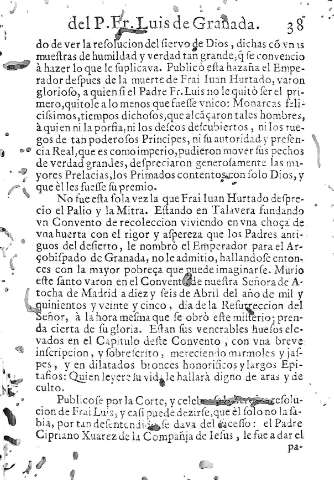 del P. Fr. Luis de Granada. 38
do de ver la resolucion del siervo de Dios, dichas cõ vnas
muestras de humildad y verdad tan grande, q̃ se convenciò
à hazer lo que le suplicava. Publicò esta hazaña el Empe-
rador despues de la muerte de Frai Iuan Hurtado, varon
glorioso, a quien si el Padre Fr. Luis no le quitò ser el pri-
mero, quitole a lo menos que fuesse vnico: Monarcas feli-
cissimos, tiempos dichosos, que alcãçaron tales hombres,
à quien ni la porfia, ni los deseos descubiertos, ni los rue-
gos de tan poderosos Principes, ni su autoridad y presen-
cia Real, que es como imperio, pudieron mover sus pechos
de verdad grandes, despreciaron generosamente las ma-
yores Prelacias, los Primados contentos con solo Dios, y
que èl les fuesse su premio.
No fue esta sola vez la que Frai Iuan Hurtado despre-
cio el Palio y la Mitra. Estando en Talavera fundando
vn Convento de recoleccion viviendo en vna choça de
vna huerta con el rigor y aspereza que los Padres anti-
guos del desierto, le nombrò el Emperador para el Ar-
çobispado de Granada, no le admitio, hallandose enton-
ces con la mayor pobreça que puede imaginarse. Murio
este santo varon en el Convento de nuestra Señora de A-
tocha de Madrid a diez y seis de Abril del año de mil y
quinientos y veinte y cinco, dia de la Resurreccion del
Señor, à la hora mesma que se obrò este misterio; pren-
da cierta de su gloria. Estan sus venerables huesos ele-
vados en el Capitulo deste Convento, con vna breve
inscripcion, y sobrescrito, mereciendo marmoles y jas-
pes, y en dilatados bronces honorificos y largos Epi-
tafios: Quien leyere su vida le hallarà digno de aras y de
culto.
Publicose por la Corte, y resolu-
cion de Frai Luis, y casi puede dezirse, que èl solo no la sa-
bia, por tan desentendido se dava del sucesso: el Padre
Cipriano Xuarez de la Compañja de Iesus, le fue a dar el
pa-